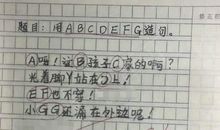 题目：用ABCDEFG造句。
A呀！这B孩子C家的啊？
光着脚Y站在D上！
EF也不穿！
小GG还漏在外边呢！